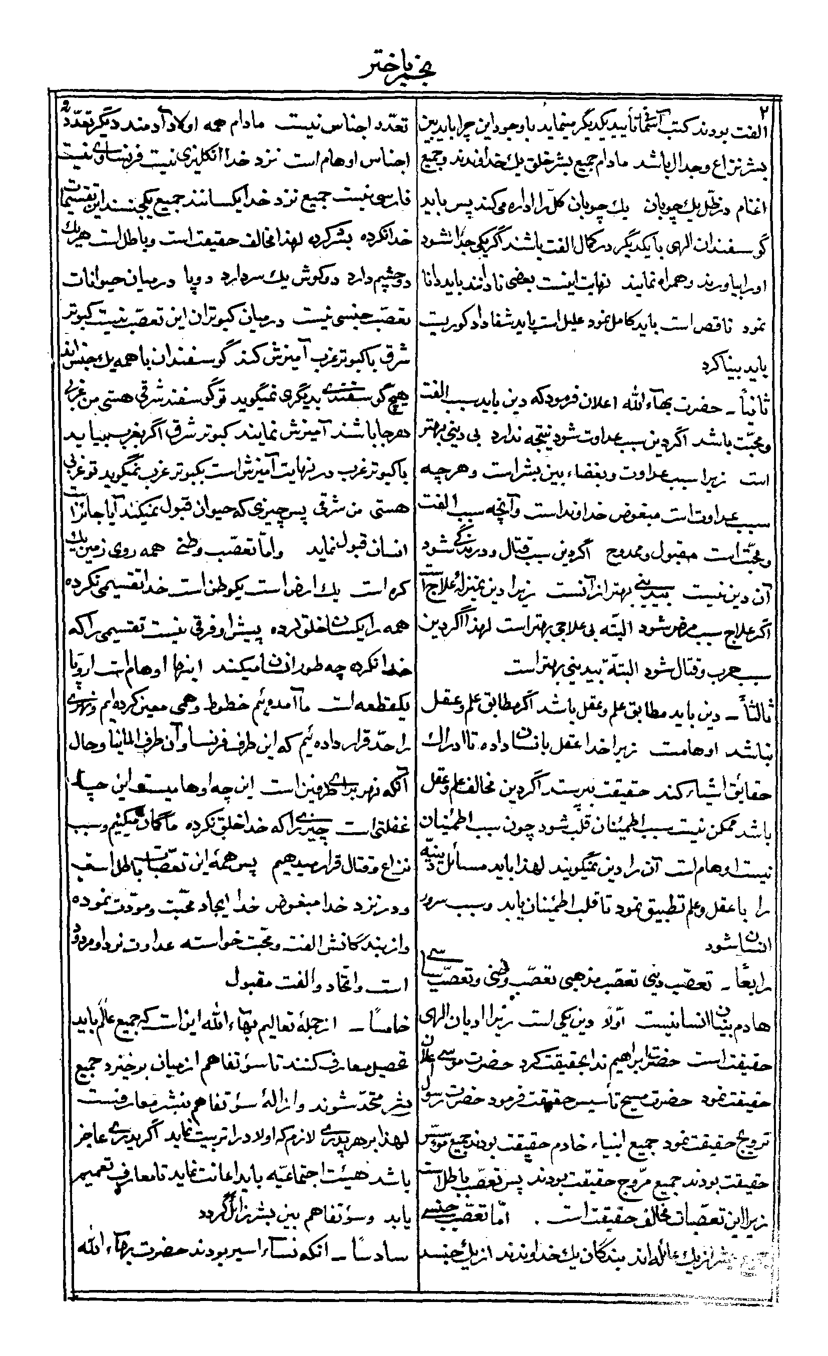 نجم باختر
۲
الفت بودند کتب آسمانی تأیید یکدیگر مینماید باوجود این چرا باید بین
بشر نزاع و جدال باشد مادام جمیع بشر خلق یك خداوندند و جمیع
اغنام در ظل یك چوپان یك چوپان کل را اداره میکند پس باید
گوسفندان الهی با یکدیگر در کمال الفت باشند اگر یکی جدا شود
او را بیاورند و همراه نمایند نهایت اینست بعضی نادانند باید دانا
نمود ناقص است باید کامل نمود علیل است باید شفا داد کور است
باید بینا کرد
ثانیاً ـ حضرت بهآءالله اعلان فرمود که دین باید سبب الفت
و محبت باشد اگر دین سبب عداوت شود نتیجه ندارد بی دینی بهتر
است زیرا سبب عداوت و بغضاء بین بشر است و هرچه
سبب عداوت است مبغوض خداوند است و آنچه سبب الفت
و محبت است مقبول و ممدوح اگر دین سبب قتال و درندگی شود
آن دین نیست بیدینی بهتر از آنست زیرا دین بمنزلهٔ علاج است
اگر علاج سبب مرض شود البته بی علاجی بهتر است لهذا اگر دین
سبب حرب و قتال شود البته بیدینی بهتر است
ثالثاً ـ دین باید مطابق علم و عقل باشد اگر مطابق علم و عقل
نباشد اوهامست زیرا خدا عقل بانسان داده تا ادراك
حقایق اشیاء کند حقیقت بپرستد اگر دین مخالف علم و عقل
باشد ممکن نیست سبب اطمینان قلب شود چون سبب اطمینان
نیست اوهام است آن را دین نمیگویند لهذا باید مسائل دینیه
را با عقل و علم تطبیق نمود تا قلب اطمینان یابد و سبب سرور
انسان شود
رابعاً ـ تعصب دینی تعصب مذهبی تعصب وطنی و تعصب سیاسی
هادم بنیان انسانیست اولا دین یکی است زیرا ادیان الهی
حقیقت است حضرت ابراهیم ندا بحقیقت کرد حضرت موسی اعلان
حقیقت نمود حضرت مسیح تأسیس حقیقت فرمود حضرت رسول
ترویج حقیقت نمود جمیع انبیاء خادم حقیقت بودند جمیع مؤسس
حقیقت بودند جمیع مروج حقیقت بودند پس تعصب باطل است
زیرا این تعصبات مخالف حقیقت است . اما تعصب جنسی
بشر از یك عائله اند بندگان یك خداوندند از یك جنسند
تعدد اجناس نیست مادام همه اولاد آدمند دیگر تعدد
اجناس اوهام است نزد خدا انگلیزی نیست فرنساوی نیست
فارسی نیست جمیع نزد خدا یکسانند جمیع یك جنسند این تقسیمات
خدا نکرده بشر کرده لهذا مخالف حقیقت است و باطل است هر یك
دو چشم دارد دو گوش یك سر دارد دو پا در میان حیوانات
تعصب جنسی نیست در میان کبوتران این تعصب نیست کبوتر
شرق با کبوتر غرب آمیزش کند گوسفندان با همه یك جنس اند
هیچ گوسفندی بدیگری نمیگوید تو گوسفند شرقی هستی من غربی
هرجا باشند آمیزش نمایند کبوتر شرق اگر بغرب بیاید
با کبوتر غرب در نهایت آمیزش است بکبوتر غرب نمیگوید تو غربی
هستی من شرقی پس چیزی که حیوان قبول نمیکند آیا جائز است
انسان قبول نماید و اما تعصب وطنی همه روی زمین یك
کره است یك ارض است یك وطن است خدا تقسیمی نکرده
همه را یکسان خلق کرده پیش او فرقی نیست تقسیمی را که
خدا نکرده چه طور انسان میکند اینها اوهام است اروپا
یك قطعه است ما آمده ایم خطوط وهمی معین کرده ایم و نهری
را حد قرار داده ایم که این طرف فرنسا و آن طرف المانیا و حال
آنکه نهر برای طرفین است این چه اوهامیست این چه
غفلتی است چیزی را که خدا خلق نکرده ما گمان میکنیم و سبب
نزاع و قتال قرار میدهیم پس همه این تعصبات باطل است
و در نزد خدا مبغوض خدا ایجاد محبت و مودت نموده
و از بندگانش الفت و محبت خواسته عداوت نزد او مردود
است و اتحاد و الفت مقبول
خامساً ـ از جملهٔ تعالیم بهآءالله این است که جمیع عالم باید
تحصیل معارف کنند تا سؤ تفاهم از میان برخیزد جمیع
بشر متحد شوند و ازالهٔ سؤ تفاهم بنشر معارفست
لهذا بر هر پدری لازم که اولاد را تربیت نماید اگر پدری عاجز
باشد هیئت اجتماعیه باید اعانت نماید تا معارف تعمیم
یابد و سؤ تفاهم بین بشر زائل گردد
سادساً ـ آنکه نساء اسیر بودند حضرت بهآءالله